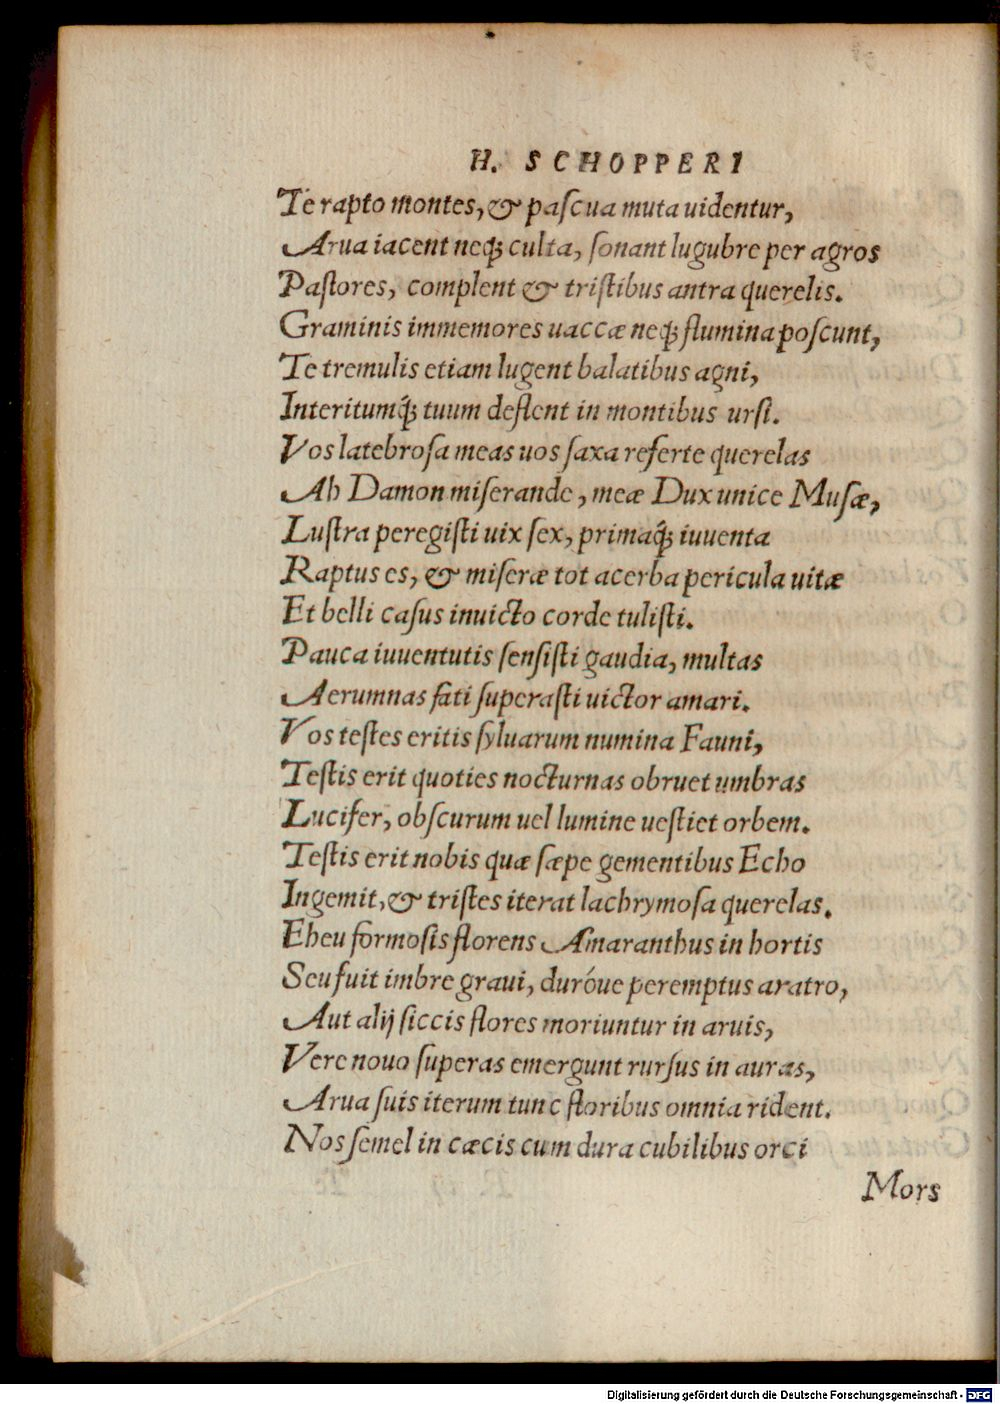 H. SCHOPPERI
Te rapto montes, & paſcua muta uidentur,
Arua iacent neq; culta, ſonant lugubre per agros
Paſtores, complent & triſtibus antra querelis.
Graminis immemores uaccæ neq; flumina poſcunt,
Te tremulis etiam lugent balatibus agni,
Interitumq́; tuum deflent in montibus urſi.
Vos latebroſa meas uos ſaxa referte querelas
Ah Damon miſerande, meæ Dux unice Muſæ,
Luſtra peregiſti uix ſex, primaq́; iuuenta
Raptus es, & miſeræ tot acerba pericula uitæ
Et belli caſus inuicto corde tuliſti.
Pauca iuuentutis ſenſiſti gaudia, multas
Aerumnas fati ſuperaſti uictor amari.
Vos teſtes eritis ſyluarum numina Fauni,
Teſtis erit quoties nocturnas obruet umbras
Lucifer, obſcurum uel lumine ueſtiet orbem.
Teſtis erit nobis quæ ſæpe gementibus Echo
Ingemit, & triſtes iterat lachrymoſa querelas.
Eheu formoſis florens Amaranthus in hortis
Seu fuit imbre graui, duróue peremptus aratro,
Aut alij ſiccis flores moriuntur in aruis,
Vere nouo ſuperas emergunt rurſus in auras,
Arua ſuis iterum tunc floribus omnia rident.
Nos ſemel in cæcis cum dura cubilibus orci
Mors
Digitalisierung gefördert durch die Deutsche Forschungsgemeinschaft - DFG